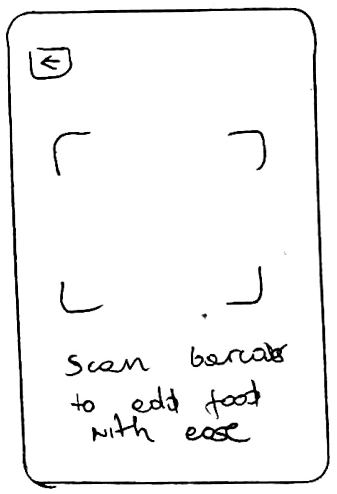 Scan barcode
to add food
with ease